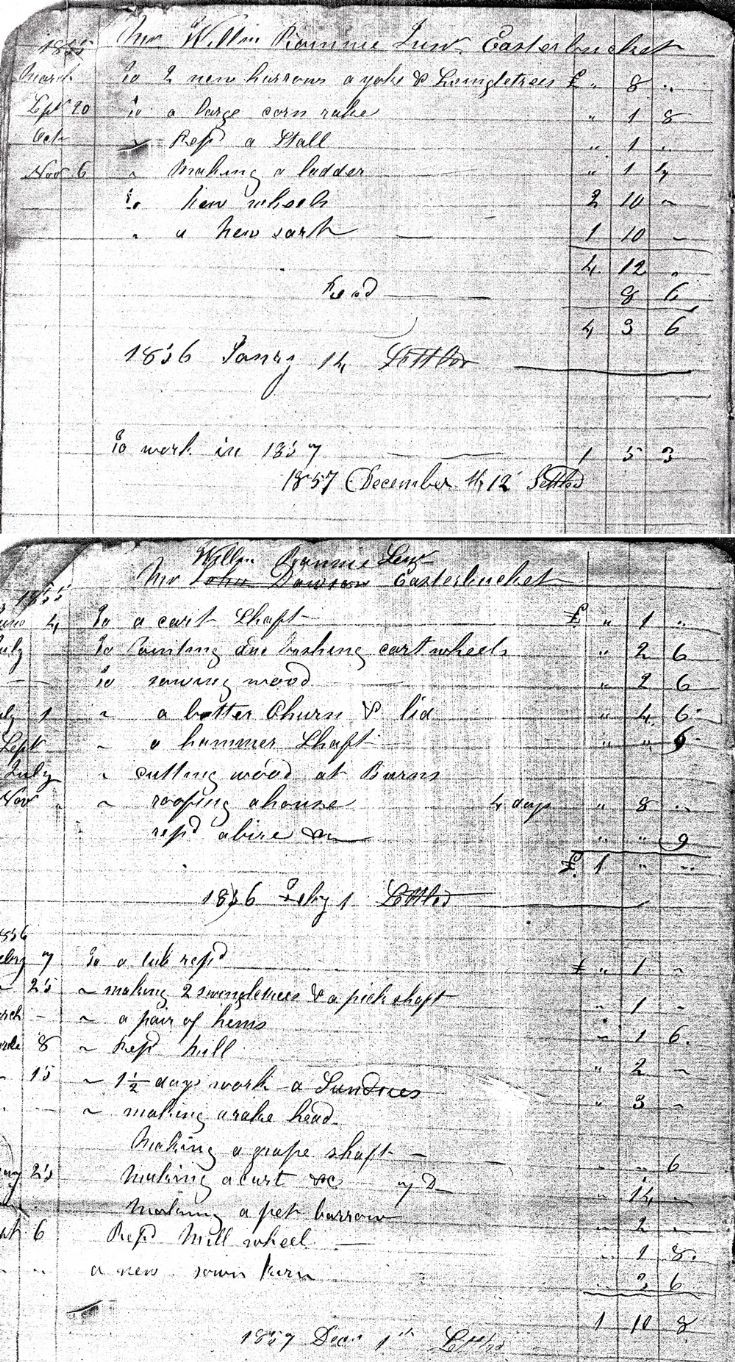 1855 Mr Willm Rannie Junr Easterbucket
March To 2 new harrows a yoke & Swingletrees £ " 8 "
Sept 20 To a large corn rake " 1 8
Oct " Repd a Stall " 1 "
Nov 6 " Making a ladder " 1 4
To New wheels 2 10 "
" a New cart 1 10 "
4 12 "
8 6
4 3 6
1856 Jany 14 Settled
To work in 1857 1 5 3
1857 December 12 Settled
Willm Rannie Junr
1855 Mr John Dawson Easterbucket
June 4 To a cart Shaft £ " 1 "
July To bushing cart wheels " 2 6
To sawing wood " 2 6
July 1 " a butter Churn & lid " 4 6
Sept " a hammer Shaft " " 6
July " cutting wood at Burns
Nov " roofing a house 4 days " 8 "
repd a bire &c " " 9
£ 1 " "
1856 Feby 1 Settled
1856
Febry 7 To a tub repd £ " 1 "
" 25 " making 2 swingletrees & a pick shaft " 1 "
March " a pair of hems " 1 6
8 " Repd mill " 2 "
" 15 " 1½ days work a Sundries " 3 "
" making a rake head
Making a grape shaft " " 6
25 Making a cart &c 7 D " 14 "
Making a pet barrow " 2 "
Sept 6 Repd Mill wheel " 1 8
" " a new 2 6
1 10 8
1857 Decr 1st Settled